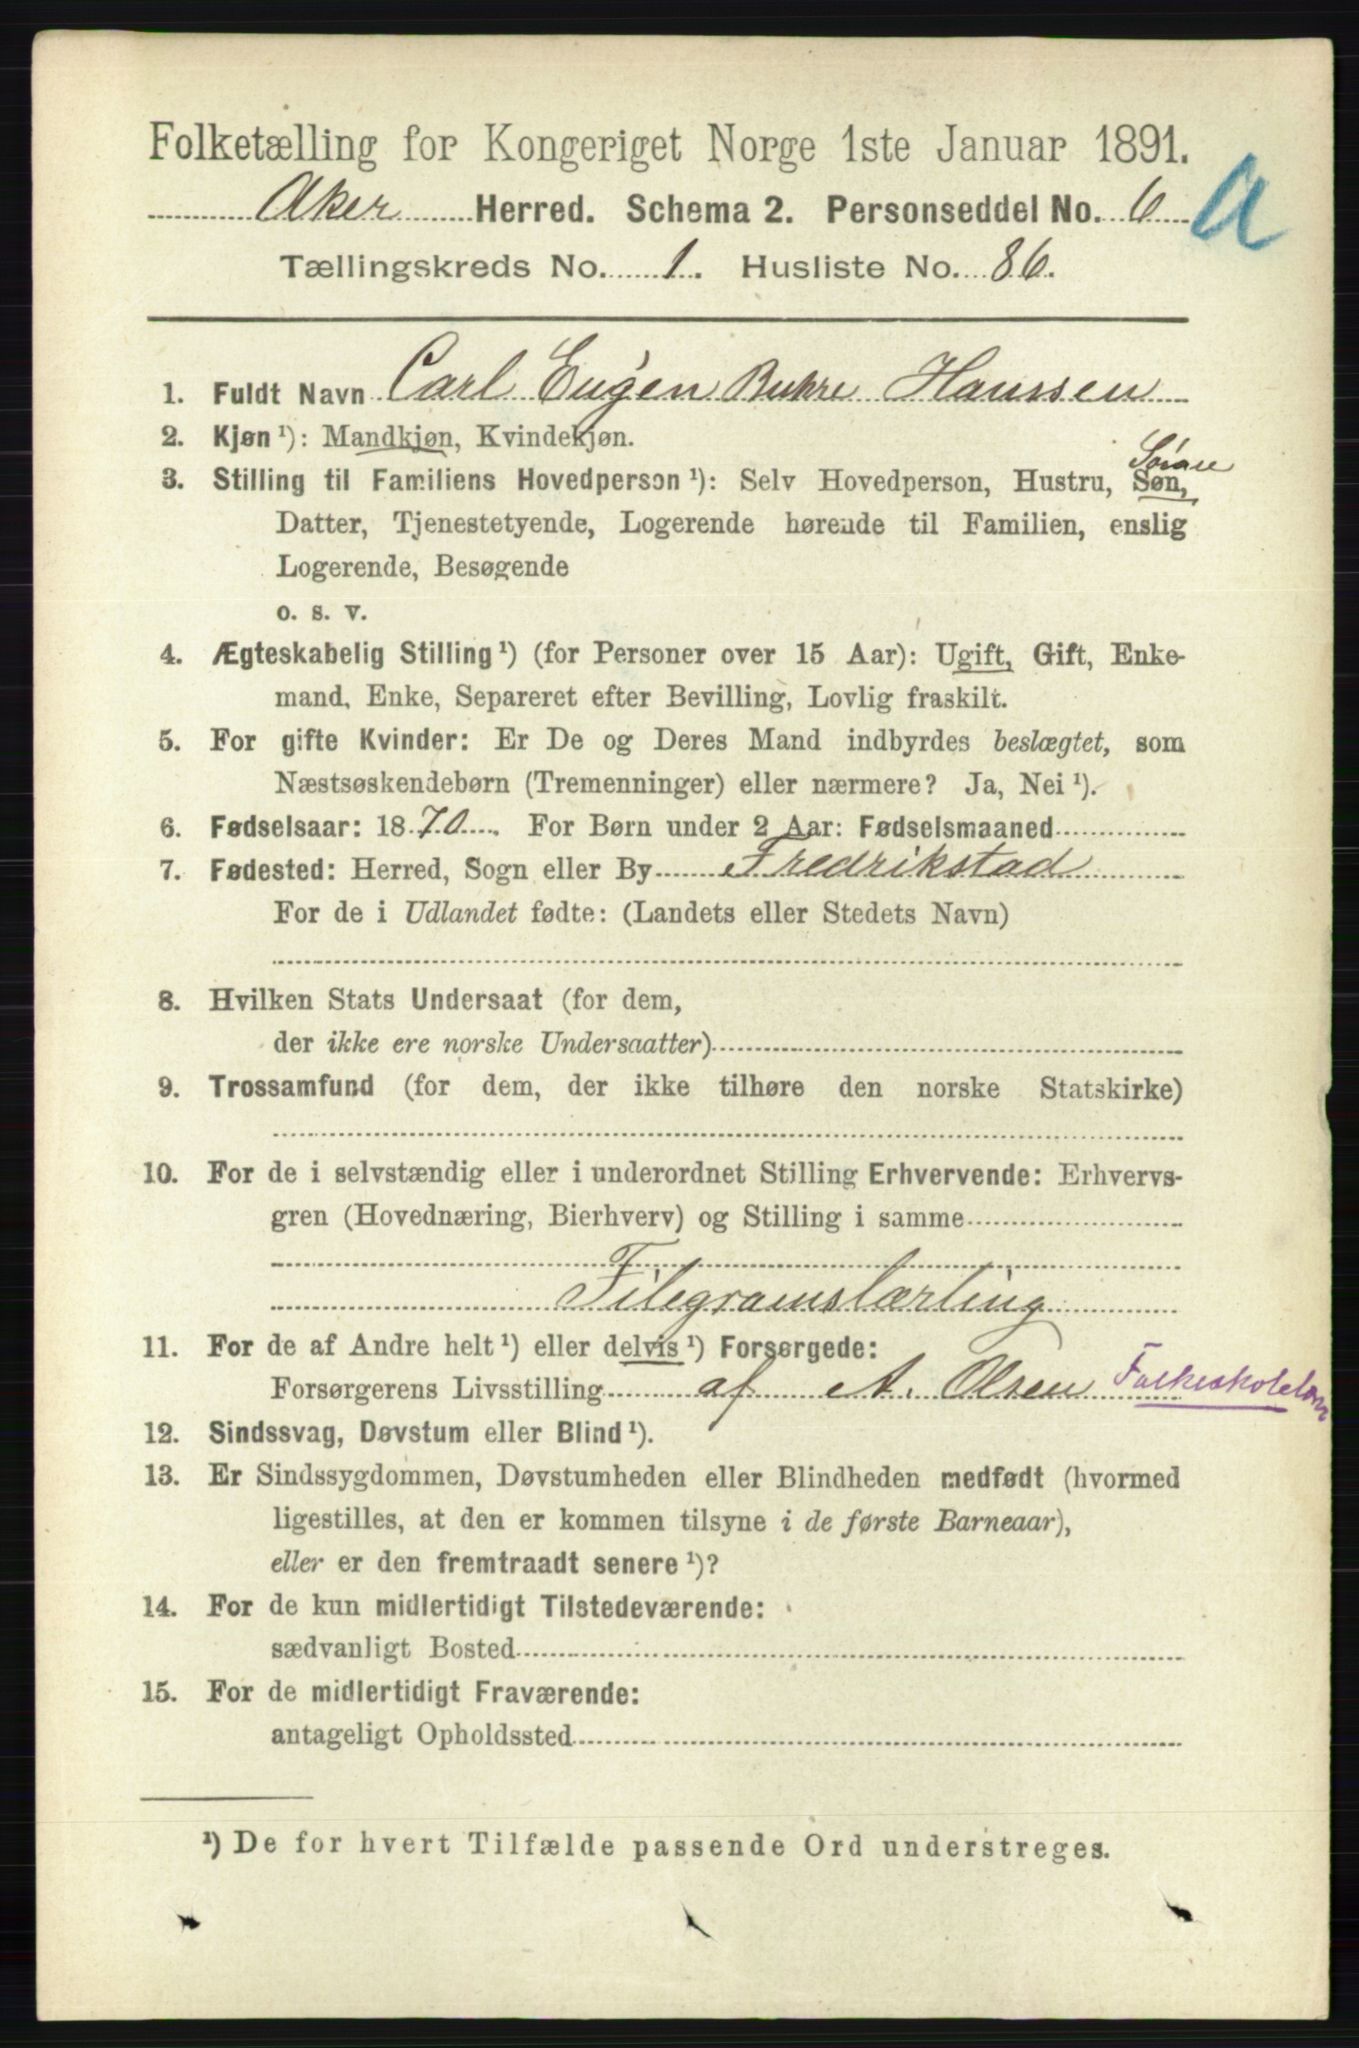 Folketælling for Kongeriget Norge 1ste Januar 1891.
Aker Herred. Schema 2. Personseddel No. 6 a
Tællingskreds No. 1. Husliste No. 86.
1. Fuldt Navn Carl Eugen Buhre Hanssen
2. Kjøn ¹): Mandkjøn, Kvindekjøn.
3. Stilling til Familiens Hovedperson ¹): Selv Hovedperson, Hustru, Søn,
Datter, Tjenestetyende, Logerende hørende til Familien, enslig
Logerende, Besøgende
o. s. v.
4. Ægteskabelig Stilling ¹) (for Personer over 15 Aar): Ugift, Gift, Enke-
mand, Enke, Separeret efter Bevilling, Lovlig fraskilt.
5. For gifte Kvinder: Er De og Deres Mand indbyrdes beslægtet, som
Næstsøskendebørn (Tremenninger) eller nærmere? Ja, Nei ¹).
6. Fødselsaar: 1870. For Børn under 2 Aar: Fødselsmaaned
7. Fødested: Herred, Sogn eller By Fredrikstad
For de i Udlandet fødte: (Landets eller Stedets Navn)
8. Hvilken Stats Undersaat (for dem,
der ikke ere norske Undersaatter)
9. Trossamfund (for dem, der ikke tilhøre den norske Statskirke)
10. For de i selvstændig eller i underordnet Stilling Erhvervende: Erhvervs-
gren (Hovednæring, Bierhverv) og Stilling i samme
Filegramslærling
11. For de af Andre helt ¹) eller delvis ¹) Forsørgede:
Forsørgerens Livsstilling af A. Olsen
12. Sindssvag, Døvstum eller Blind ¹).
13. Er Sindssygdommen, Døvstumheden eller Blindheden medfødt (hvormed
ligestilles, at den er kommen tilsyne i de første Barneaar),
eller er den fremtraadt senere ¹)?
14. For de kun midlertidigt Tilstedeværende:
sædvanligt Bosted
15. For de midlertidigt Fraværende:
antageligt Opholdssted
¹) De for hvert Tilfælde passende Ord understreges.